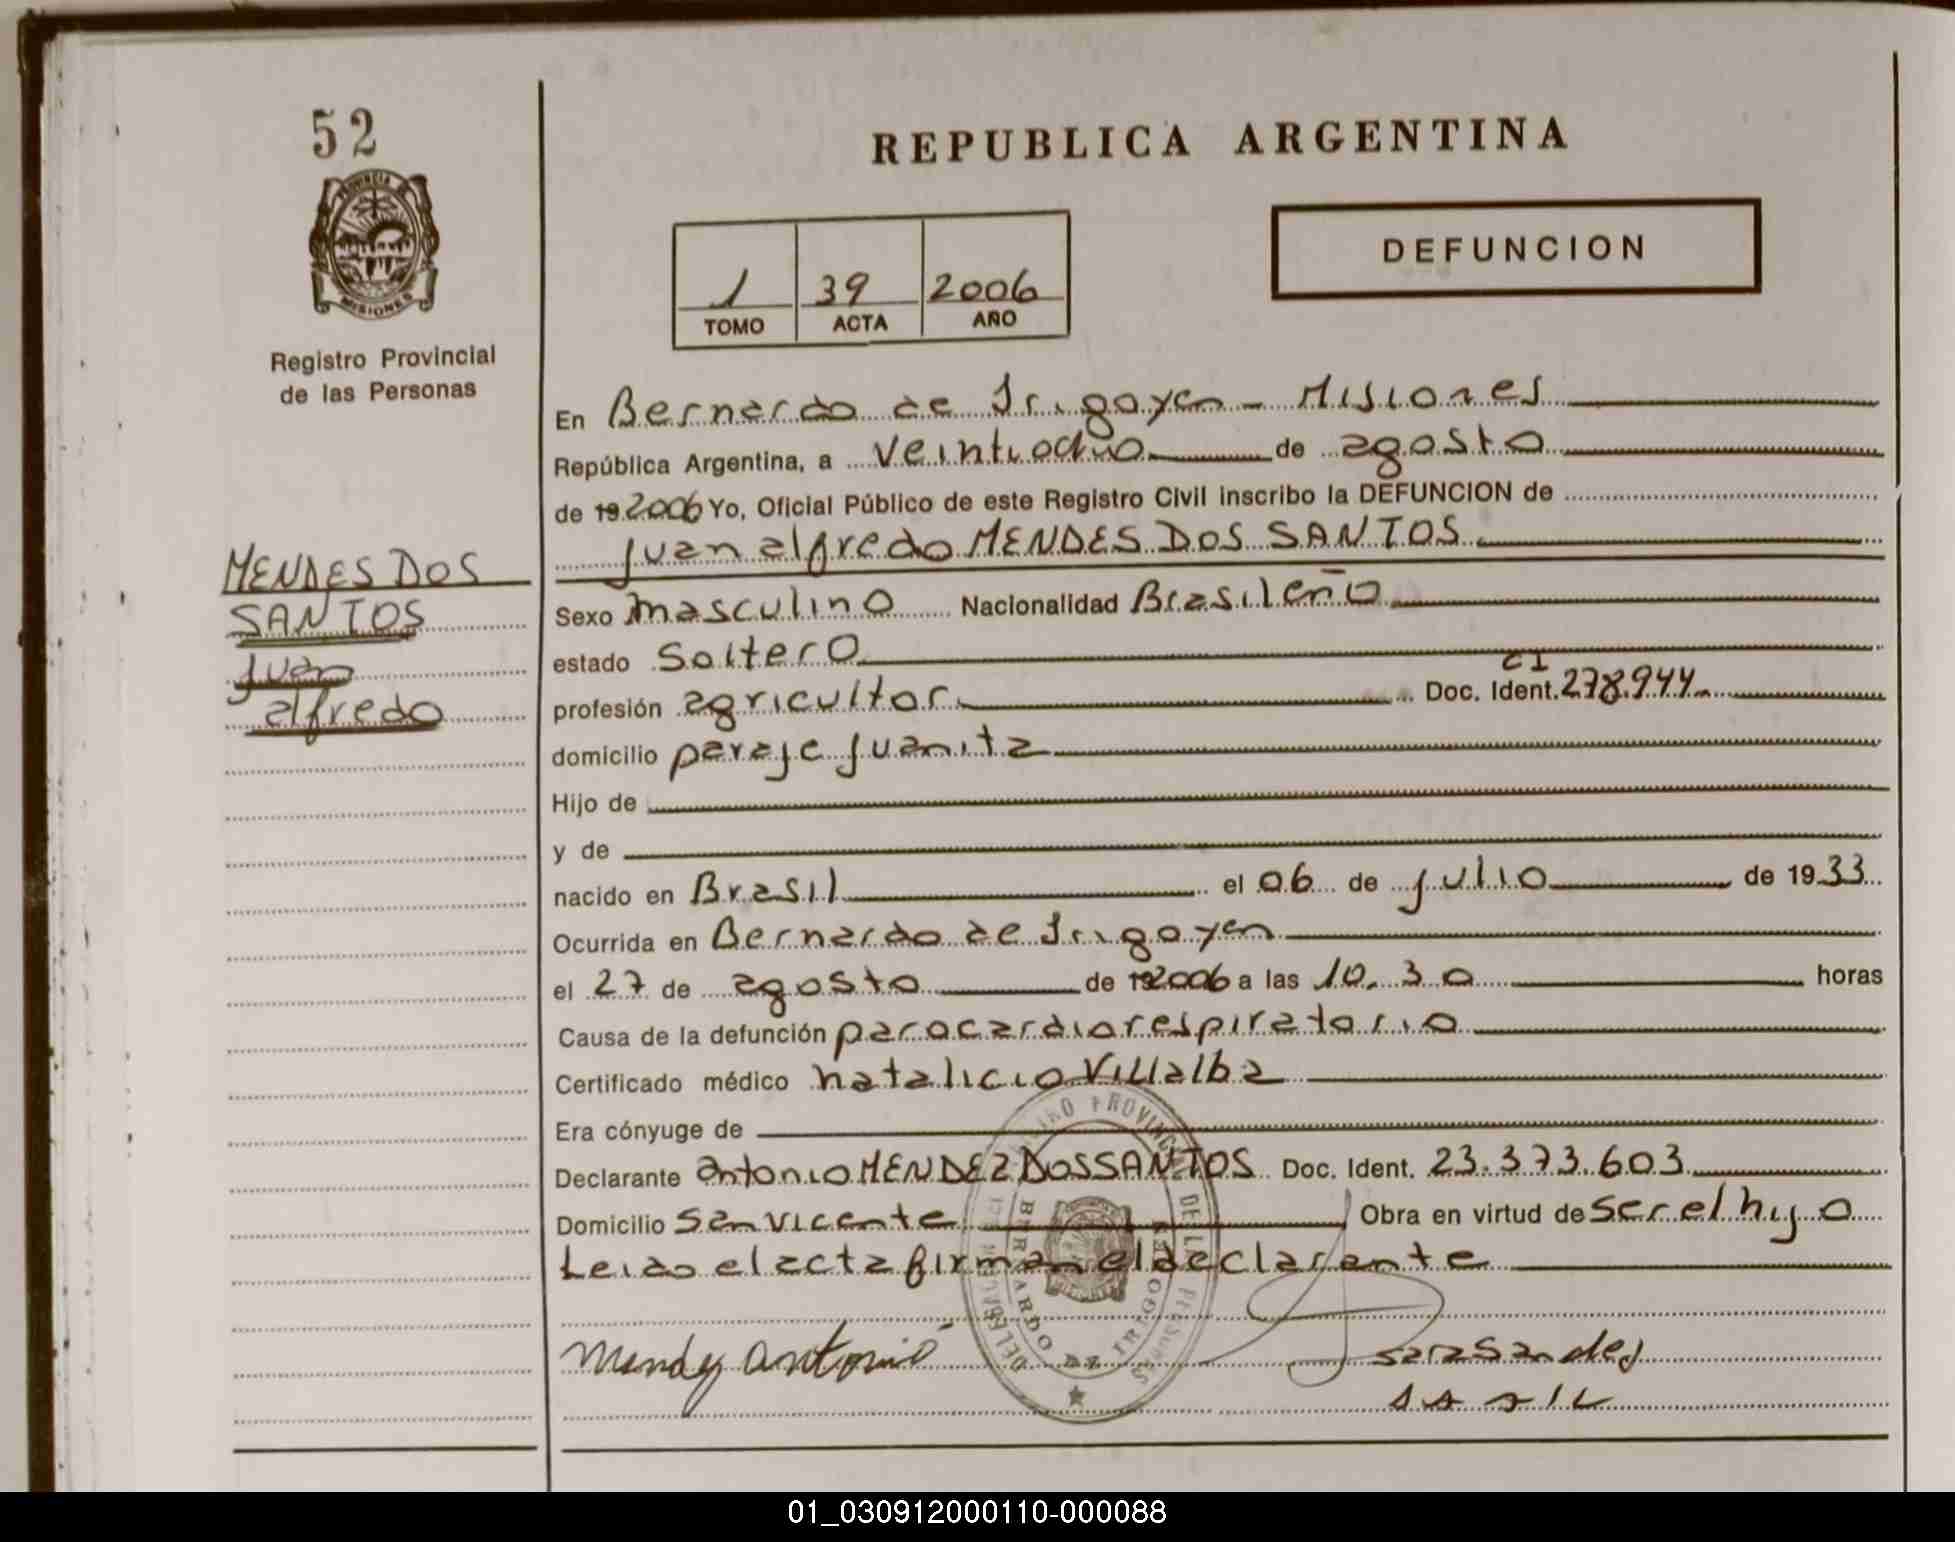 52
PROVINCIA DE
MISIONES
Registro Provincial
de las Personas
MENDES DOS
SANTOS
Juan
alfredo
REPUBLICA ARGENTINA
DEFUNCION
1 39 2006
TOMO ACTA AÑO
En Bernardo de Irigoyen - Misiones
República Argentina, a veintiocho de agosto
de 19 2006 Yo, Oficial Público de este Registro Civil inscribo la DEFUNCION de
Juan alfredo MENDES DOS SANTOS
Sexo masculino Nacionalidad Brasileño
estado soltero
CI
profesión agricultor Doc. Ident. 278.944
domicilio paraje Juanita
Hijo de
y de
nacido en Brasil el 06 de julio de 1933
Ocurrida en Bernardo de Irigoyen
el 27 de agosto de 19 2006 a las 10.30 horas
Causa de la defunción parocardiorespiratorio
Certificado médico natalicio Villalba
Era cónyuge de
Declarante antonio MENDEZ DOSSANTOS Doc. Ident. 23.373.603
Domicilio San Vicente Obra en virtud de ser el hijo
Leido el acta firma el declarante
Mendez Antonio
01_030912000110-000088